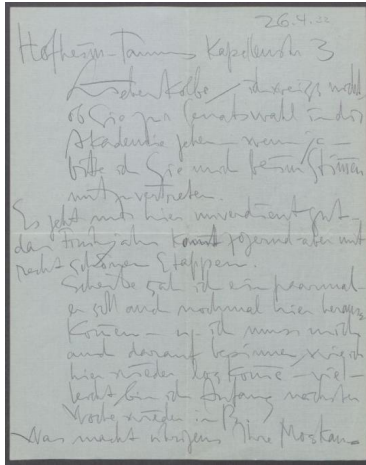 26.4.22
Hofheim-Taunus Kapellenstr 3
Lieber Kolbe / ich weiß nicht
ob Sie zur Senatswahl in die
Akademie gehen – wenn ja –
bitte ich Sie mich beim Stimmen
mit zu vertreten.
Es geht mir hier unverdient gut –
das Frühjahr kommt zögernd aber mit
recht schönen Etappen.
Scheibe sah ich ein paarmal
er soll auch nochmal hier heraus
kommen – ich muss mich
auch darauf besinnen wie ich
hier wieder los komme – viel-
leicht bin ich Anfang nächster
Woche wieder in
Was macht übrigens Ihre